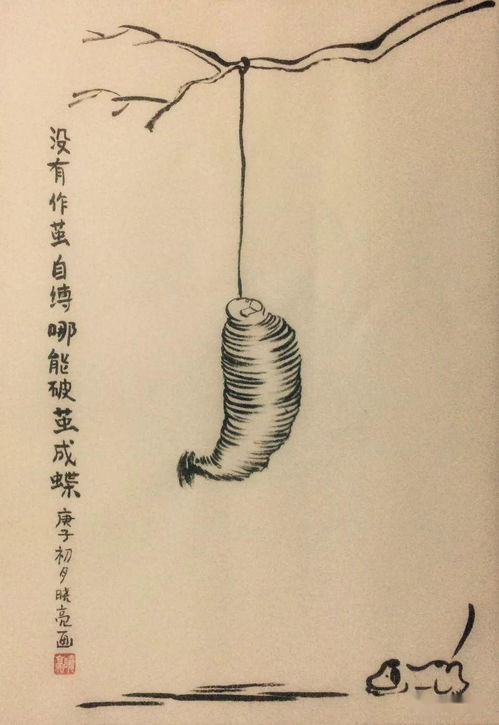 没有作茧自缚哪能破茧成蝶
庚子初夕晓亮画